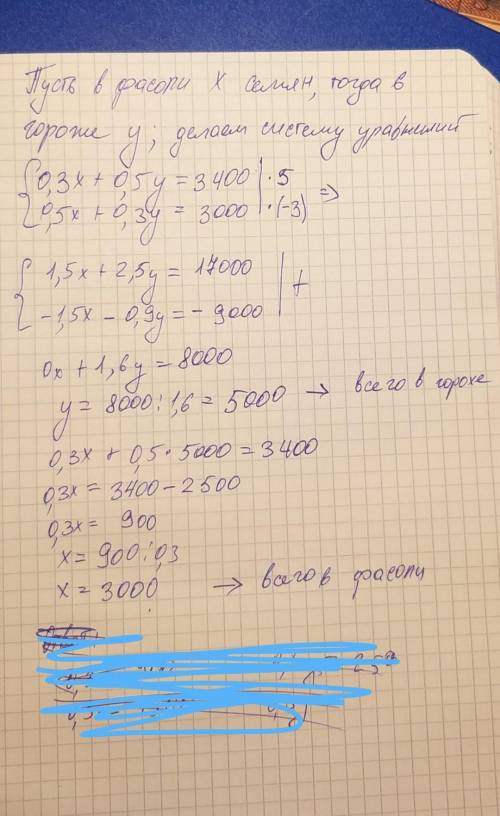 Пусть в фасоли x семян, тогда в
горохе y; делаем систему уравнений
0,3x + 0,5y = 3400 | · 5
0,5x + 0,3y = 3000 | · (-3) =>
1,5x + 2,5y = 17000
-1,5x - 0,9y = - 9000 | +
0x + 1,6y = 8000
y = 8000 : 1,6 = 5000 → всего в горохе
0,3x + 0,5 · 5000 = 3400
0,3x = 3400 - 2500
0,3x = 900
x = 900 : 0,3
x = 3000 → всего в фасоли